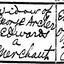 widow of
George Archer
Edwards
a
Merchant